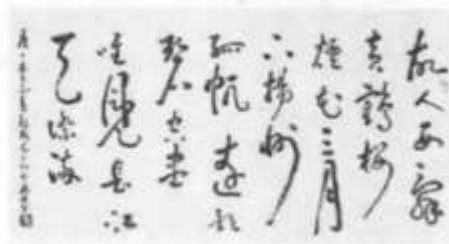 故人西辭
黄鶴樓
煙花三月
下揚州
孤帆遠影
碧空盡
唯見長江
天際流